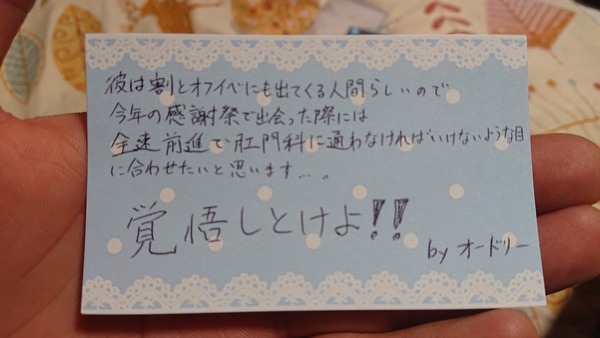 彼は割とオフイベにも出てくる人間らしいので
今年の感謝祭で出会った際には
全速前進で肛門科に通わなければいけないような目
に合わせたいと思います…。
覚悟しとけよ!!
by オードリー